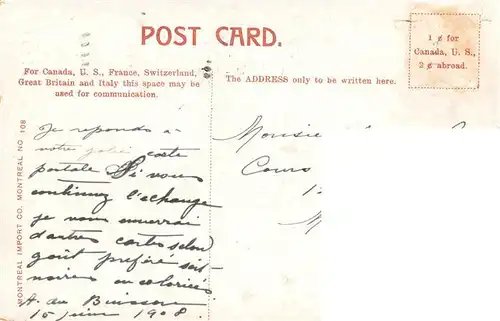 POST CARD.
1 ¢ for
Canada, U. S.,
2 ¢ abroad.
For Canada, U. S., France, Switzerland,
Great Britain and Italy this space may be
used for communication.
The ADDRESS only to be written here.
MONTREAL IMPORT CO. MONTREAL NO. 108
Je réponds à
votre jolie carte
postale Si vous
continuez l'échange
je vous enverrai
d'autres cartes selon
goût préféré soit
noires ou coloriées
A. du Buisson
15 juin 1908.
Monsie
Cours